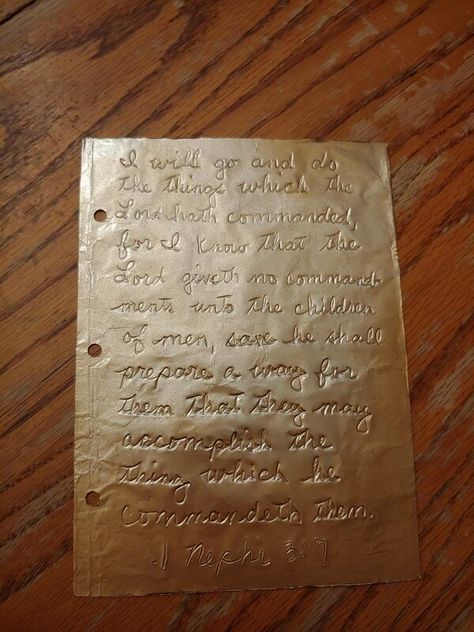 I will go and do
the things which the
Lord hath commanded,
for I know that the
Lord giveth no command-
ments unto the children
of men, save he shall
prepare a way for
them that they may
accomplish the
thing which he
commandeth them.
1 Nephi 3:7